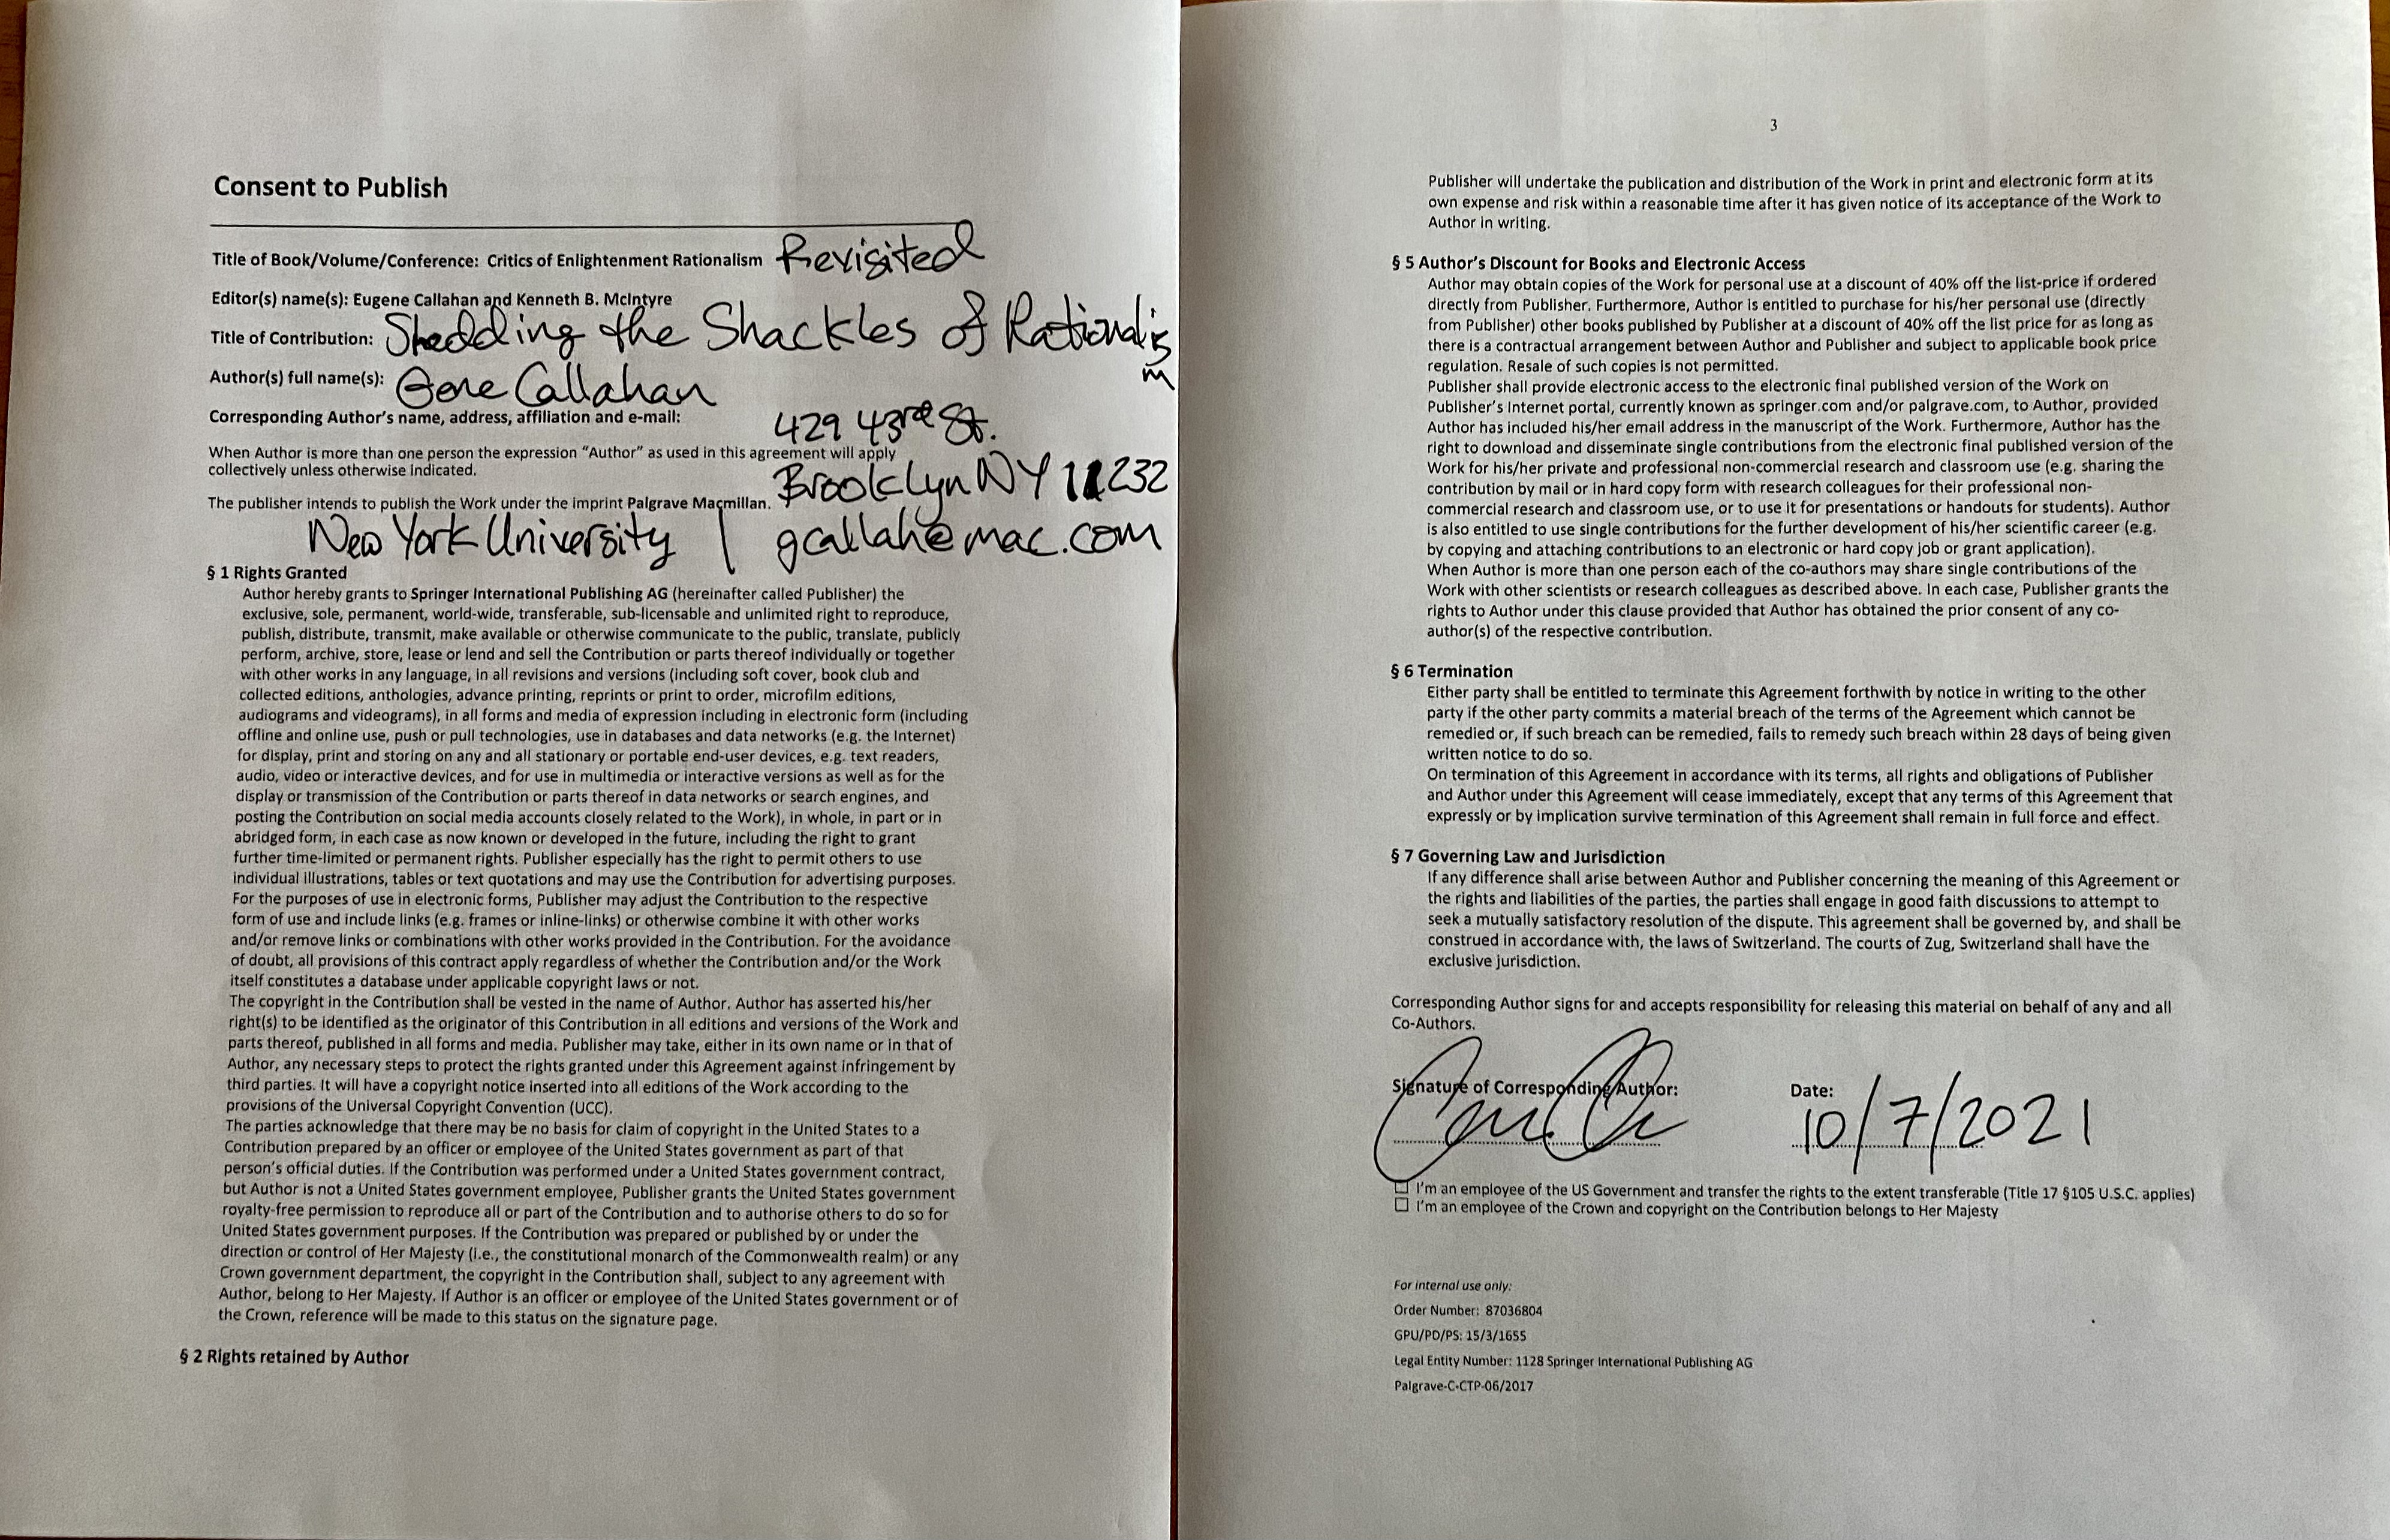 Consent to Publish
Title of Book/Volume/Conference: Critics of Enlightenment Rationalism Revisited
Editor(s) name(s): Eugene Callahan and Kenneth B. McIntyre
Title of Contribution: Shedding the Shackles of Rationalism
Author(s) full name(s): Gene Callahan
Corresponding Author's name, address, affiliation and e-mail:
429 43rd St.
When Author is more than one person the expression "Author" as used in this agreement will apply
collectively unless otherwise indicated.
Brooklyn NY 11232
The publisher intends to publish the Work under the imprint Palgrave Macmillan.
New York University | gcallah@mac.com
§ 1 Rights Granted
Author hereby grants to Springer International Publishing AG (hereinafter called Publisher) the
exclusive, sole, permanent, world-wide, transferable, sub-licensable and unlimited right to reproduce,
publish, distribute, transmit, make available or otherwise communicate to the public, translate, publicly
perform, archive, store, lease or lend and sell the Contribution or parts thereof individually or together
with other works in any language, in all revisions and versions (including soft cover, book club and
collected editions, anthologies, advance printing, reprints or print to order, microfilm editions,
audiograms and videograms), in all forms and media of expression including in electronic form (including
offline and online use, push or pull technologies, use in databases and data networks (e.g. the Internet)
for display, print and storing on any and all stationary or portable end-user devices, e.g. text readers,
audio, video or interactive devices, and for use in multimedia or interactive versions as well as for the
display or transmission of the Contribution or parts thereof in data networks or search engines, and
posting the Contribution on social media accounts closely related to the Work), in whole, in part or in
abridged form, in each case as now known or developed in the future, including the right to grant
further time-limited or permanent rights. Publisher especially has the right to permit others to use
individual illustrations, tables or text quotations and may use the Contribution for advertising purposes.
For the purposes of use in electronic forms, Publisher may adjust the Contribution to the respective
form of use and include links (e.g. frames or inline-links) or otherwise combine it with other works
and/or remove links or combinations with other works provided in the Contribution. For the avoidance
of doubt, all provisions of this contract apply regardless of whether the Contribution and/or the Work
itself constitutes a database under applicable copyright laws or not.
The copyright in the Contribution shall be vested in the name of Author. Author has asserted his/her
right(s) to be identified as the originator of this Contribution in all editions and versions of the Work and
parts thereof, published in all forms and media. Publisher may take, either in its own name or in that of
Author, any necessary steps to protect the rights granted under this Agreement against infringement by
third parties. It will have a copyright notice inserted into all editions of the Work according to the
provisions of the Universal Copyright Convention (UCC).
The parties acknowledge that there may be no basis for claim of copyright in the United States to a
Contribution prepared by an officer or employee of the United States government as part of that
person's official duties. If the Contribution was performed under a United States government contract,
but Author is not a United States government employee, Publisher grants the United States government
royalty-free permission to reproduce all or part of the Contribution and to authorise others to do so for
United States government purposes. If the Contribution was prepared or published by or under the
direction or control of Her Majesty (i.e., the constitutional monarch of the Commonwealth realm) or any
Crown government department, the copyright in the Contribution shall, subject to any agreement with
Author, belong to Her Majesty. If Author is an officer or employee of the United States government or of
the Crown, reference will be made to this status on the signature page.
§ 2 Rights retained by Author
3
Publisher will undertake the publication and distribution of the Work in print and electronic form at its
own expense and risk within a reasonable time after it has given notice of its acceptance of the Work to
Author in writing.
§ 5 Author's Discount for Books and Electronic Access
Author may obtain copies of the Work for personal use at a discount of 40% off the list-price if ordered
directly from Publisher. Furthermore, Author is entitled to purchase for his/her personal use (directly
from Publisher) other books published by Publisher at a discount of 40% off the list price for as long as
there is a contractual arrangement between Author and Publisher and subject to applicable book price
regulation. Resale of such copies is not permitted.
Publisher shall provide electronic access to the electronic final published version of the Work on
Publisher's Internet portal, currently known as springer.com and/or palgrave.com, to Author, provided
Author has included his/her email address in the manuscript of the Work. Furthermore, Author has the
right to download and disseminate single contributions from the electronic final published version of the
Work for his/her private and professional non-commercial research and classroom use (e.g. sharing the
contribution by mail or in hard copy form with research colleagues for their professional non-
commercial research and classroom use, or to use it for presentations or handouts for students). Author
is also entitled to use single contributions for the further development of his/her scientific career (e.g.
by copying and attaching contributions to an electronic or hard copy job or grant application).
When Author is more than one person each of the co-authors may share single contributions of the
Work with other scientists or research colleagues as described above. In each case, Publisher grants the
rights to Author under this clause provided that Author has obtained the prior consent of any co-
author(s) of the respective contribution.
§ 6 Termination
Either party shall be entitled to terminate this Agreement forthwith by notice in writing to the other
party if the other party commits a material breach of the terms of the Agreement which cannot be
remedied or, if such breach can be remedied, fails to remedy such breach within 28 days of being given
written notice to do so.
On termination of this Agreement in accordance with its terms, all rights and obligations of Publisher
and Author under this Agreement will cease immediately, except that any terms of this Agreement that
expressly or by implication survive termination of this Agreement shall remain in full force and effect.
§ 7 Governing Law and Jurisdiction
If any difference shall arise between Author and Publisher concerning the meaning of this Agreement or
the rights and liabilities of the parties, the parties shall engage in good faith discussions to attempt to
seek a mutually satisfactory resolution of the dispute. This agreement shall be governed by, and shall be
construed in accordance with, the laws of Switzerland. The courts of Zug, Switzerland shall have the
exclusive jurisdiction.
Corresponding Author signs for and accepts responsibility for releasing this material on behalf of any and all
Co-Authors.
Signature of Corresponding Author: Date:
10/7/2021
I'm an employee of the US Government and transfer the rights to the extent transferable (Title 17 §105 U.S.C. applies)
I'm an employee of the Crown and copyright on the Contribution belongs to Her Majesty
For internal use only:
Order Number: 87036804
GPU/PD/PS: 15/3/1655
Legal Entity Number: 1128 Springer International Publishing AG
Palgrave-C-CTP-06/2017